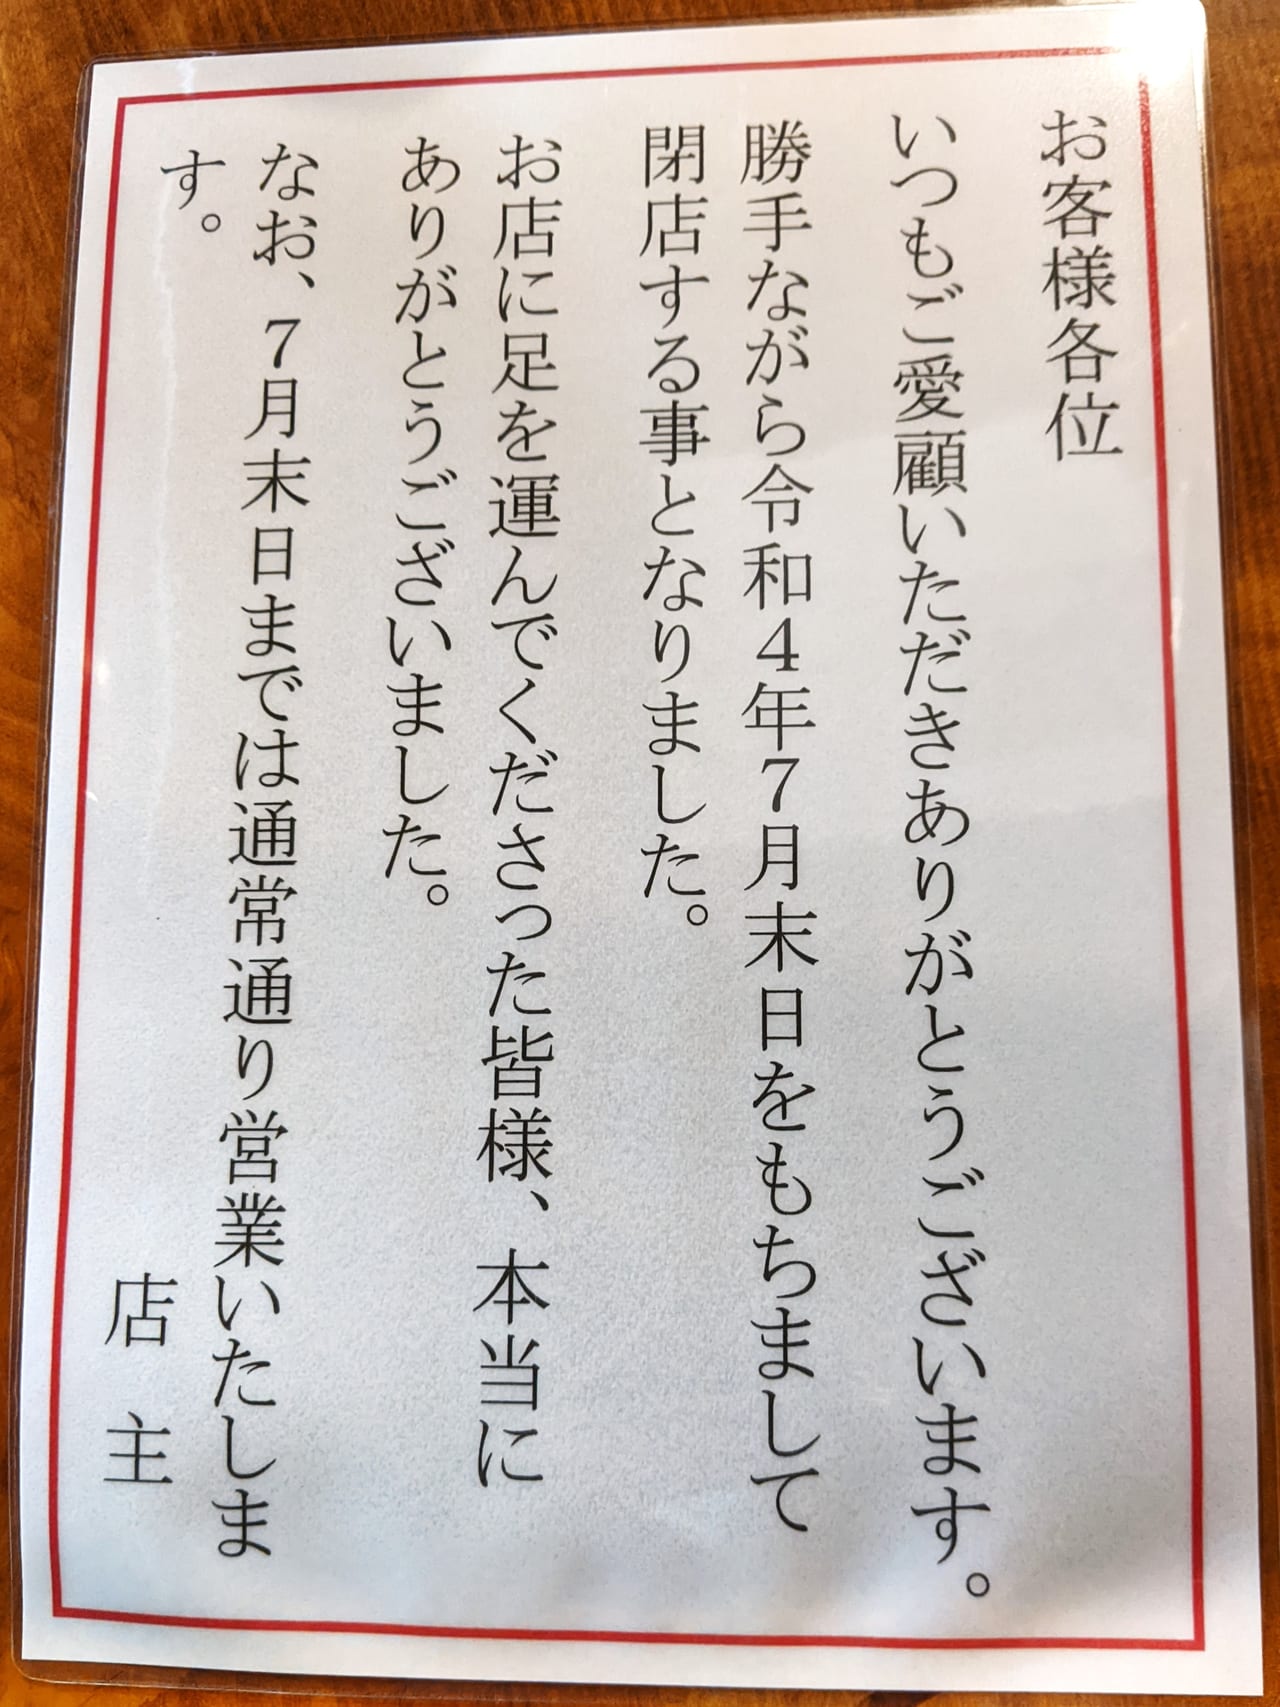 お客様各位
いつもご愛顧いただきありがとうございます。
勝手ながら令和４年７月末日をもちまして
閉店する事となりました。
お店に足を運んでくださった皆様、本当に
ありがとうございました。
なお、７月末日までは通常通り営業いたしま
す。
店　主